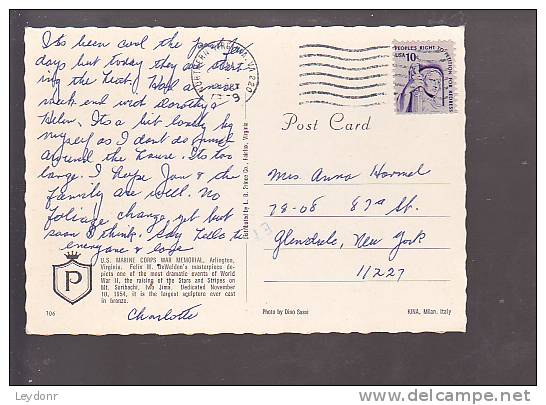 Its been cool the past few
days but today they are start
ing the heat. Had a nice
week end with Dorothy &
Helen. Its a bit lonely by
myself as I dont do much
around the house. Its too
large. I hope Jan & the
family are well. No
foliage change, yet but
soon I think. Say hello to
everyone & love
Charlotte
U.S. MARINE CORPS WAR MEMORIAL, Arlington,
Virginia. Felix W. DeWeldon's masterpiece de-
picts one of the most dramatic events of World
War II, the raising of the Stars and Stripes on
Mt. Suribachi, Iwo Jima. Dedicated November
10, 1954, it is the largest sculpture ever cast
in bronze.
P
106
Distributed by L. B. Prince Co. - Fairfax, Virginia
NORTHERN VIRGINIA, VA 220
PEOPLE'S RIGHT TO PETITION FOR REDRESS
USA 10c
Post Card
Mrs Anna Hormel
78-08 87th St.
Glendale, New York
11227
Photo by Dino Sassi
KINA, Milan, Italy
Leydonr
delcampe.net